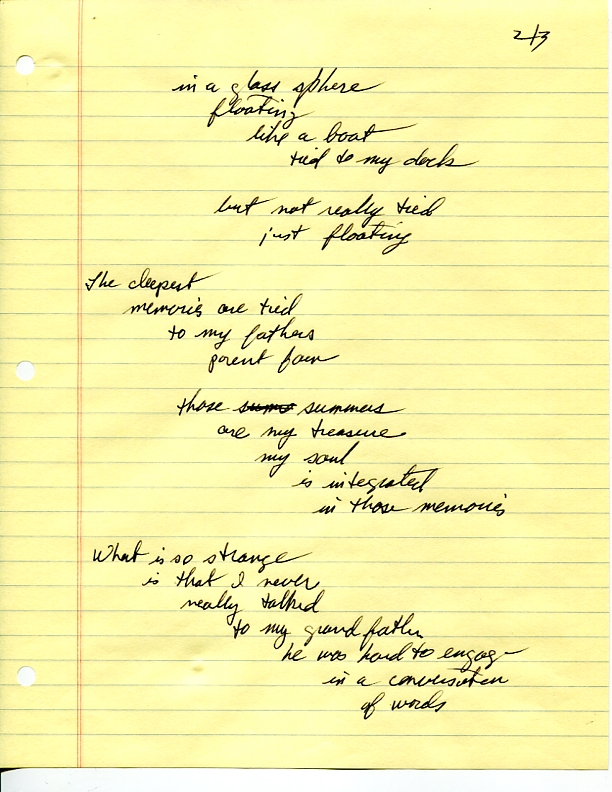 2/3
in a glass sphere
floating
like a boat
tied to my dock
but not really tied
just floating
The deepest
memories are tied
to my fathers
parent farm
those sums summers
are my treasure
my soul
is integrated
in those memories
What is so strange
is that I never
really talked
to my grandfather
he was hard to engage
in a conversation
of words